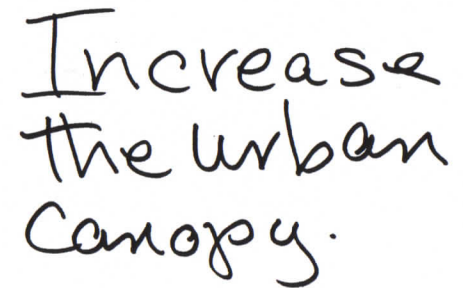 Increase
the urban
canopy.